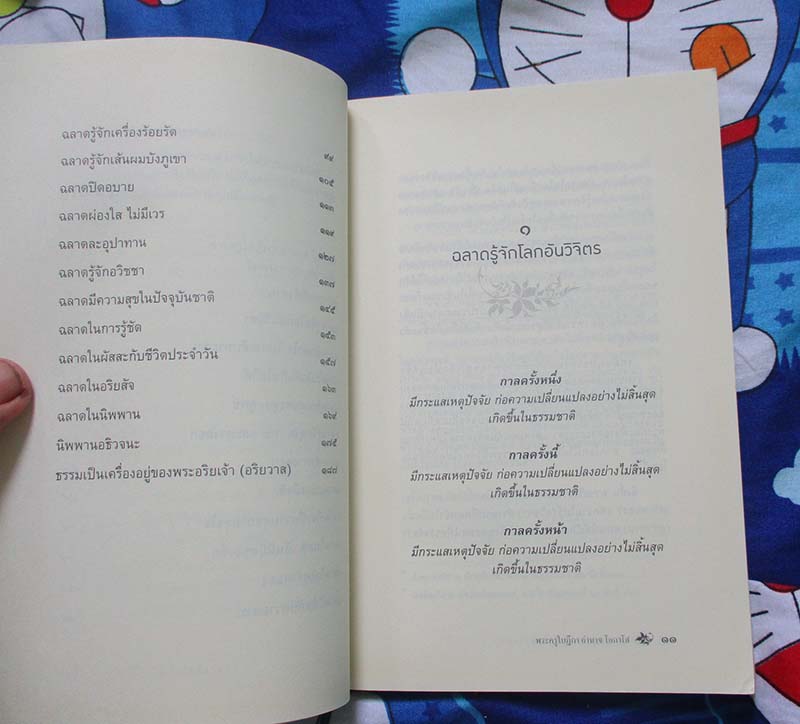 ฉลาดรู้จักเครื่องร้อยรัด ๙๙
ฉลาดรู้จักเส้นผมบังภูเขา ๑๐๕
ฉลาดปิดอบาย ๑๑๓
ฉลาดผ่องใส ไม่มีเวร ๑๑๙
ฉลาดละอุปาทาน ๑๒๗
ฉลาดรู้จักอวิชชา ๑๓๗
ฉลาดมีความสุขในปัจจุบันชาติ ๑๔๕
ฉลาดในการรู้ชัด ๑๕๓
ฉลาดในผัสสะกับชีวิตประจำวัน ๑๕๗
ฉลาดในอริยสัจ ๑๖๓
ฉลาดในนิพพาน ๑๖๙
นิพพานอธิวจนะ ๑๗๕
ธรรมเป็นเครื่องอยู่ของพระอริยเจ้า (อริยวาส) ๑๘๗
๑
ฉลาดรู้จักโลกอันวิจิตร
กาลครั้งหนึ่ง
มีกระแสเหตุปัจจัย ก่อความเปลี่ยนแปลงอย่างไม่สิ้นสุด
เกิดขึ้นในธรรมชาติ
กาลครั้งนี้
มีกระแสเหตุปัจจัย ก่อความเปลี่ยนแปลงอย่างไม่สิ้นสุด
เกิดขึ้นในธรรมชาติ
กาลครั้งหน้า
มีกระแสเหตุปัจจัย ก่อความเปลี่ยนแปลงอย่างไม่สิ้นสุด
เกิดขึ้นในธรรมชาติ
พระครูใบฎีกา อำนาจ โอภาโส ๑๑